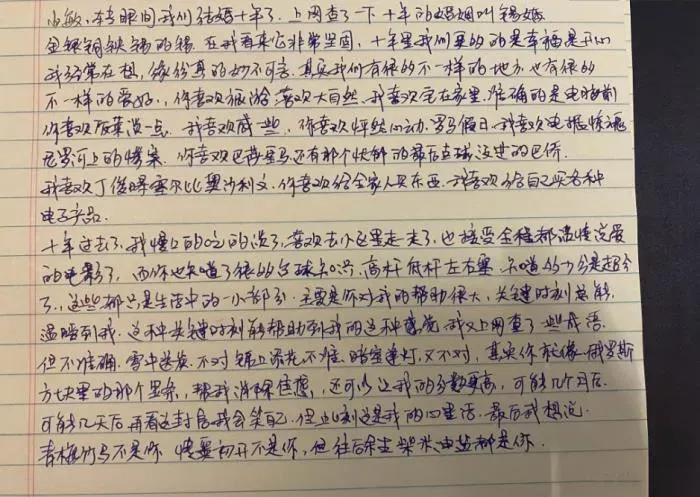 小敏，本意眼间我们结婚十年了．上网查了一下十年的婚姻叫锡婚
金银铜铁锡的锡．在我看来它非常坚固，十年里我们更多的是幸福是开心
我经常在想，缘份真的妙不可言．其实我们有很多不一样的地方也有很多
不一样的爱好．，你喜欢旅游 喜欢大自然．我喜欢宅在家里．准确的是电脑前
你喜欢饭菜淡一点．我喜欢咸一些，你喜欢怦然心动．罗马假日．我喜欢电锯惊魂
尼罗河上的惨案．你喜欢巴萨皇马还有那个快船的最后点球没进的巴乔．
我喜欢丁俊晖塞尔比奥沙利文．你喜欢给全家人买东西．我喜欢给自己买各种
电子产品．
十年过去了．我慢慢的吃的淡了．喜欢去小区里走一走了．也接受全程都谈情说爱
的电影了．而你也知道了很多台球知识．高杆低杆左右塞．知道147分是超分
了．这些都只是生活中的一小部分．主要是你对我的帮助很大，关键时刻总能
温暖到我．这种关键时刻能帮助到我的这种感觉 我又上网查了一些成语．
但不准确．雪中送炭．不对 锦上添花 不准．暗室逢灯，又不对，其实你就像俄罗斯
方块里的那个竖条，帮我消除焦虑，还可以让我的分数更高，可能几个月后．
可能几天后再看这封信我会笑自己．但此刻这是我的心里话．最后我想说．
青梅竹马不是你 情窦初开不是你，但往后余生柴米油盐都是你．